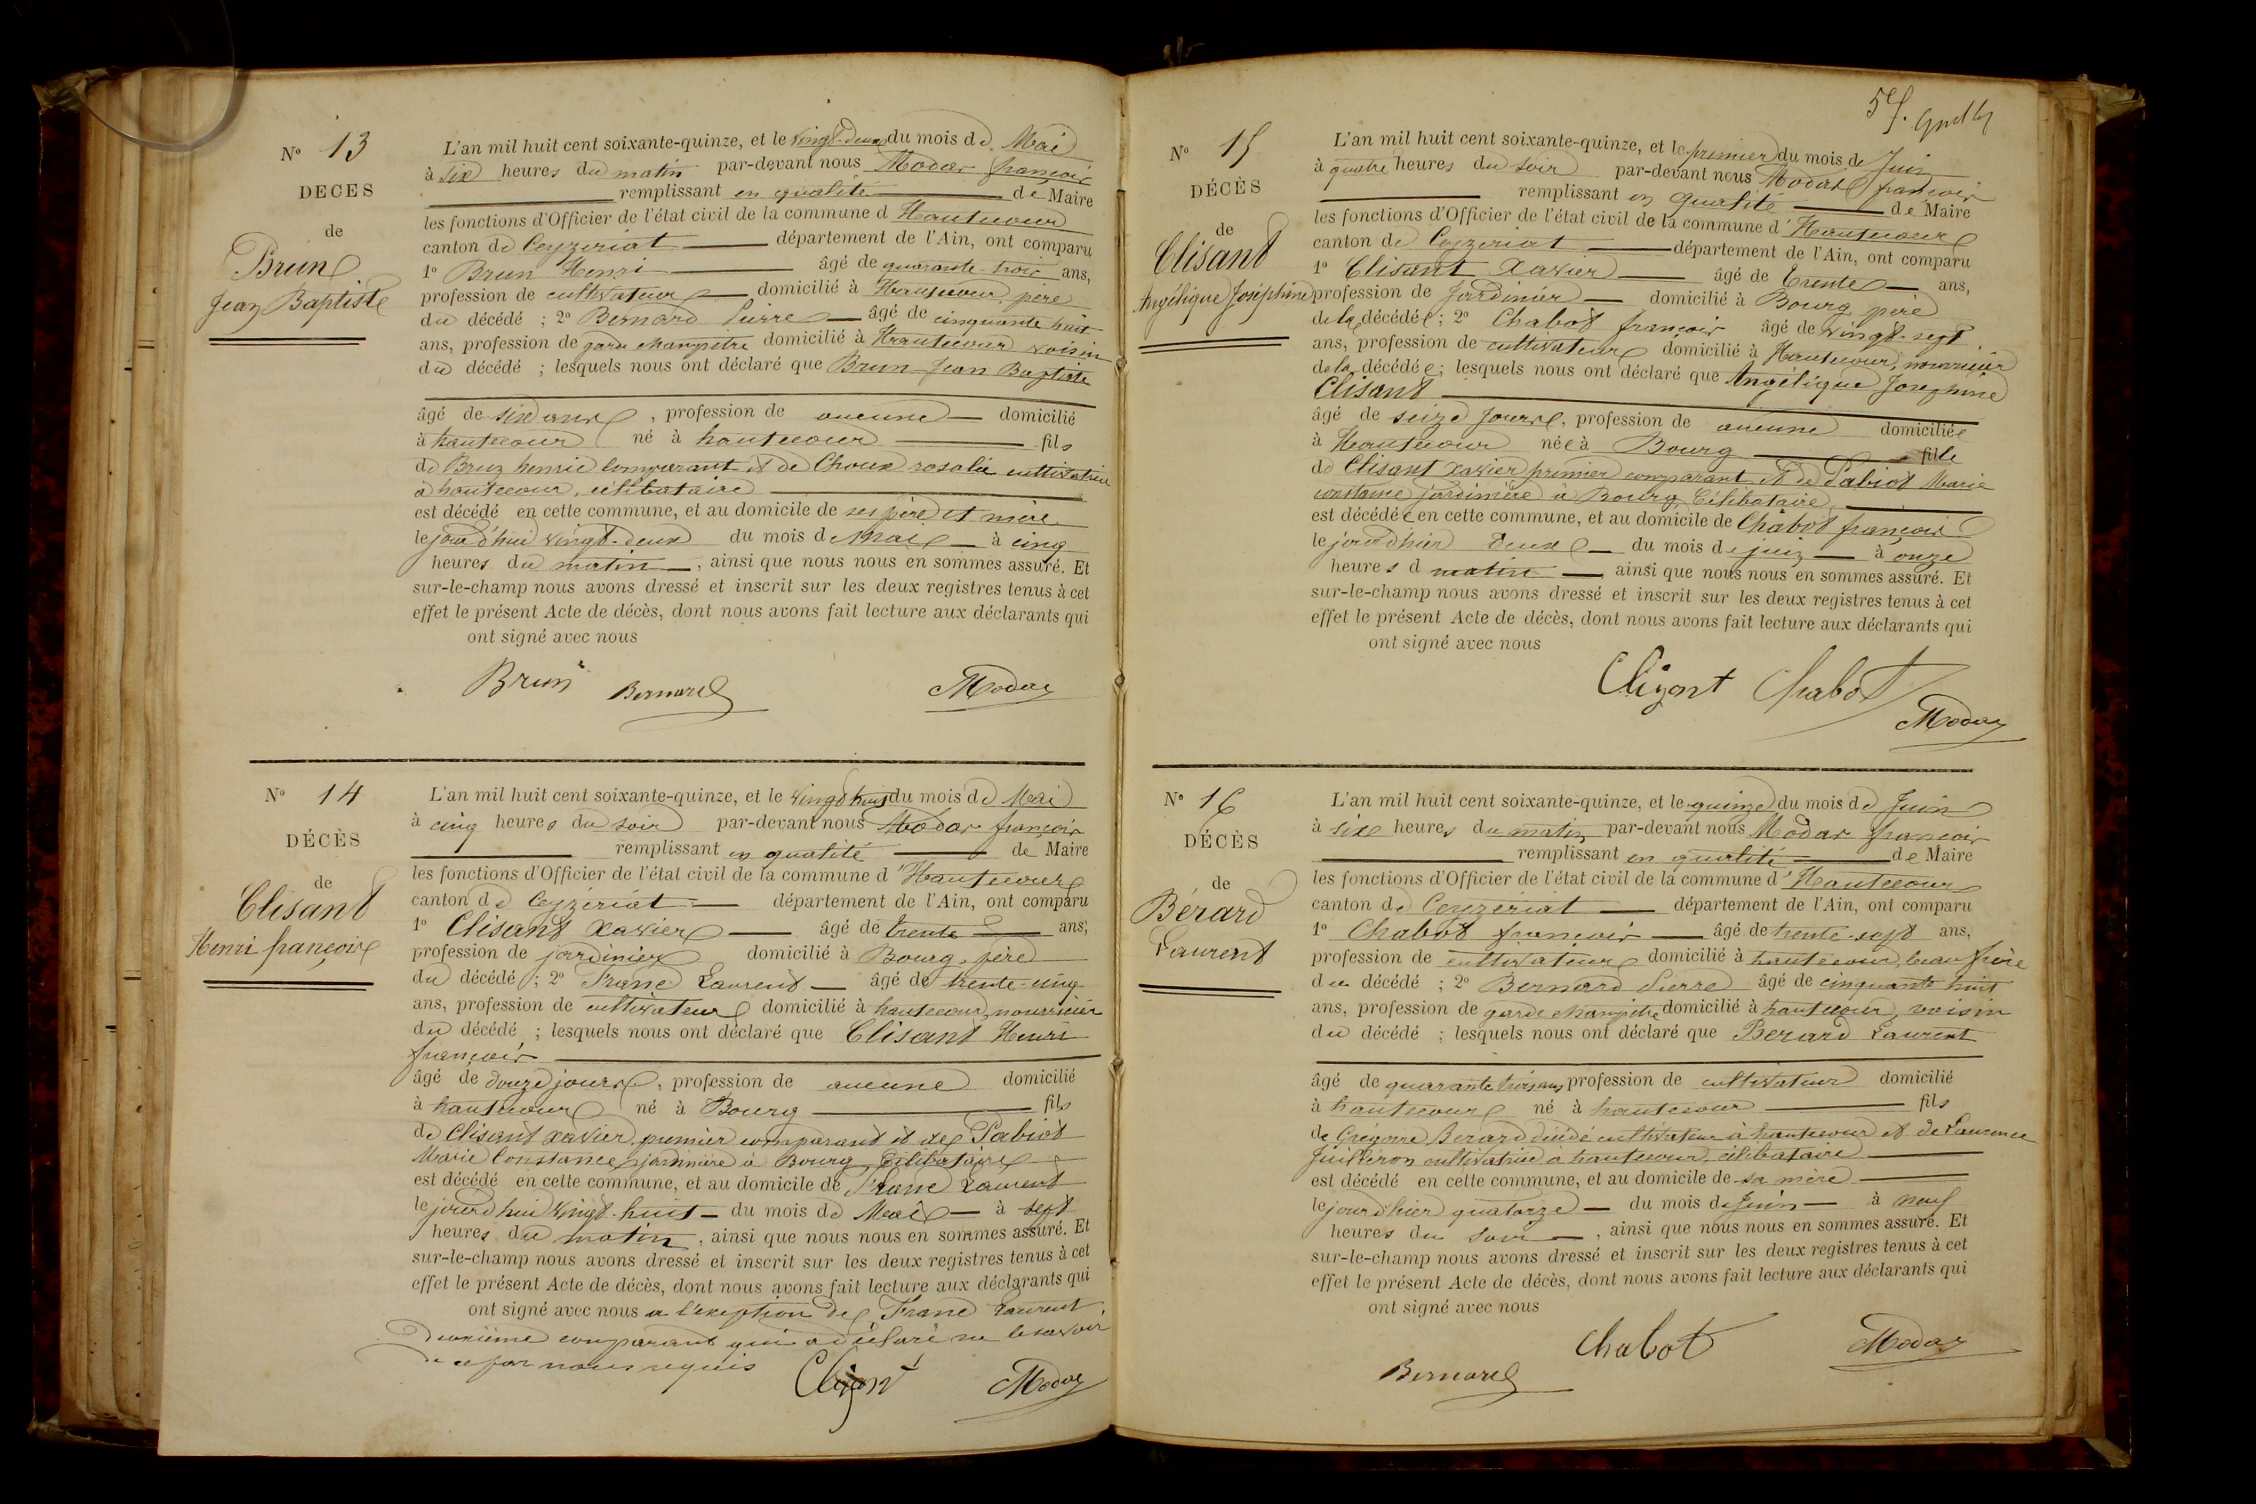 Nº 13
DÉCES
de
Brun
Jean Baptiste
L'an mil huit cent soixante-quinze, et le vingt-deux du mois de Mai
à six heures du matin par-devant nous Modas françois
remplissant en qualité de Maire
les fonctions d'Officier de l'état civil de la commune d Hautecour
canton de Ceyzeriat département de l'Ain, ont comparu
1º Brun Henri âgé de quarante-trois ans,
profession de cultivateur domicilié à Hautecour, père
du décédé ; 2º Bernard Pierre âgé de cinquante huit
ans, profession de garde champêtre domicilié à Hautecour voisin
du décédé ; lesquels nous ont déclaré que Brun Jean Baptiste
âgé de six ans , profession de aucune domicilié
à hautecour né à hautecour fils
de Brun henri comparant et de Choux rosalie cultivatrice
à hautecour, célibataire
est décédé en cette commune, et au domicile de ses père et mère
le jourd'hui vingt-deux du mois de Mai à cinq
heures du matin , ainsi que nous nous en sommes assuré. Et
sur-le-champ nous avons dressé et inscrit sur les deux registres tenus à cet
effet le présent Acte de décès, dont nous avons fait lecture aux déclarants qui
ont signé avec nous
Brun Bernard Modas
Nº 14
DÉCÈS
de
Clisant
Henri françois
L'an mil huit cent soixante-quinze, et le vingt huit du mois de Mai
à cinq heures du soir par-devant nous Modas françois
remplissant en qualité de Maire
les fonctions d'Officier de l'état civil de la commune d'Hautecour
canton de Ceyzériat département de l'Ain, ont comparu
1º Clisant Xavier âgé de trente ans,
profession de jardinier domicilié à Bourg, père
du décédé ; 2º Franc Laurent âgé de trente-cinq
ans, profession de cultivateur domicilié à hautecour, nourricier
du décédé ; lesquels nous ont déclaré que Clisant Henri
françois
âgé de douze jours , profession de aucune domicilié
à hautecour né à Bourg fils
de Clisant Xavier premier comparant et de Pabiot
Marie Constance, jardinière à Bourg Célibataire
est décédé en cette commune, et au domicile de Franc Laurent
le jourd'hui vingt-huit du mois de Mai à sept
heures du matin , ainsi que nous nous en sommes assuré. Et
sur-le-champ nous avons dressé et inscrit sur les deux registres tenus à cet
effet le présent Acte de décès, dont nous avons fait lecture aux déclarants qui
ont signé avec nous a l'exeption de Franc Laurent
Deuxième comparant qui a déclaré ne le savoir
de ce par nous requis Clizant Modas
57.
Nº 15
DÉCÈS
de
Clisant
Angélique Joséphine
L'an mil huit cent soixante-quinze, et le premier du mois de Juin
à quatre heures du soir par-devant nous Modas françois
remplissant en qualité de Maire
les fonctions d'Officier de l'état civil de la commune d'Hautecour
canton de Ceyzeriat département de l'Ain, ont comparu
1º Clisant Xavier âgé de Trente ans,
profession de Jardinier domicilié à Bourg père
de la décédée ; 2º Chabot françois âgé de vingt-sept
ans, profession de cultivateur domicilié à Hautecour, nourricier
de la décédée ; lesquels nous ont déclaré que Angélique Josephine
Clisant
âgé de seize jours, profession de aucune domiciliée
à Hautecour née à Bourg fille
de Clisant Xavier premier comparant et de Pabiot Marie
constance jardinière à Bourg Célibataire
est décédée en cette commune, et au domicile de Chabot françois
le jourd'hier deux du mois de juin à onze
heures d matin , ainsi que nous nous en sommes assuré. Et
sur-le-champ nous avons dressé et inscrit sur les deux registres tenus à cet
effet le présent Acte de décès, dont nous avons fait lecture aux déclarants qui
ont signé avec nous
Clizant Chabot
Modas
Nº 16
DÉCÈS
de
Bérard
Laurent
L'an mil huit cent soixante-quinze, et le quinze du mois de Juin
à six heures du matin par-devant nous Modas françois
remplissant en qualité de Maire
les fonctions d'Officier de l'état civil de la commune d'Hautecour
canton de Ceyzeriat département de l'Ain, ont comparu
1º Chabot françois âgé de trente-sept ans,
profession de cultivateur domicilié à hautecour, beau frère
du décédé ; 2º Bernard Pierre âgé de cinquante huit
ans, profession de garde champêtre domicilié à hautecour, voisin
du décédé ; lesquels nous ont déclaré que Berard Laurent
âgé de quarante trois ans profession de cultivateur domicilié
à hautecour né à hautecour fils
de Grégoire Berard décédé cultivateur à hautecour et de Laurence
Juilleron cultivatrice à hautecour, célibataire
est décédé en cette commune, et au domicile de sa mère
le jourd'hier quatorze du mois de Juin à neuf
heures du soir , ainsi que nous nous en sommes assuré. Et
sur-le-champ nous avons dressé et inscrit sur les deux registres tenus à cet
effet le présent Acte de décès, dont nous avons fait lecture aux déclarants qui
ont signé avec nous
Chabot Modas
Bernard